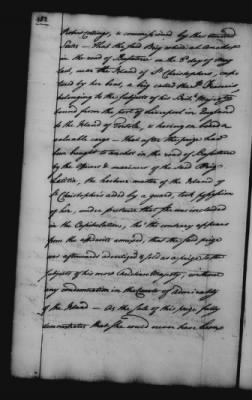 182
Robert Collings, & commissioned by the United
States — That the said Brig whilst at Anchor
in the road of Basseterre on the 8th day of May
last, near the Island of St Christophers, cap
tured by her boat, a brig called the
belonging to the subjects of his Brit: Majesty
bound from the port of Liverpool in England
to the Island of Tortola, & having on board a
valuable cargo — that after the prize had
been brought to anchor in the road of Basseterre
by the Officers & mariners of the said Brig
the harbour master of the Island of
St Christophers aided by a guard, took possession
of her, under pretence that she was included
in the Capitulation, tho' the contrary appears
from the affidavits annexed, that the said prize
was afterwards advertized & sold as a prize to the
subjects of his most Christian Majesty, without
any condemnation in the Courts of Admiralty
of the Island — As the sale of this prize fully
demonstrates that she would never have been